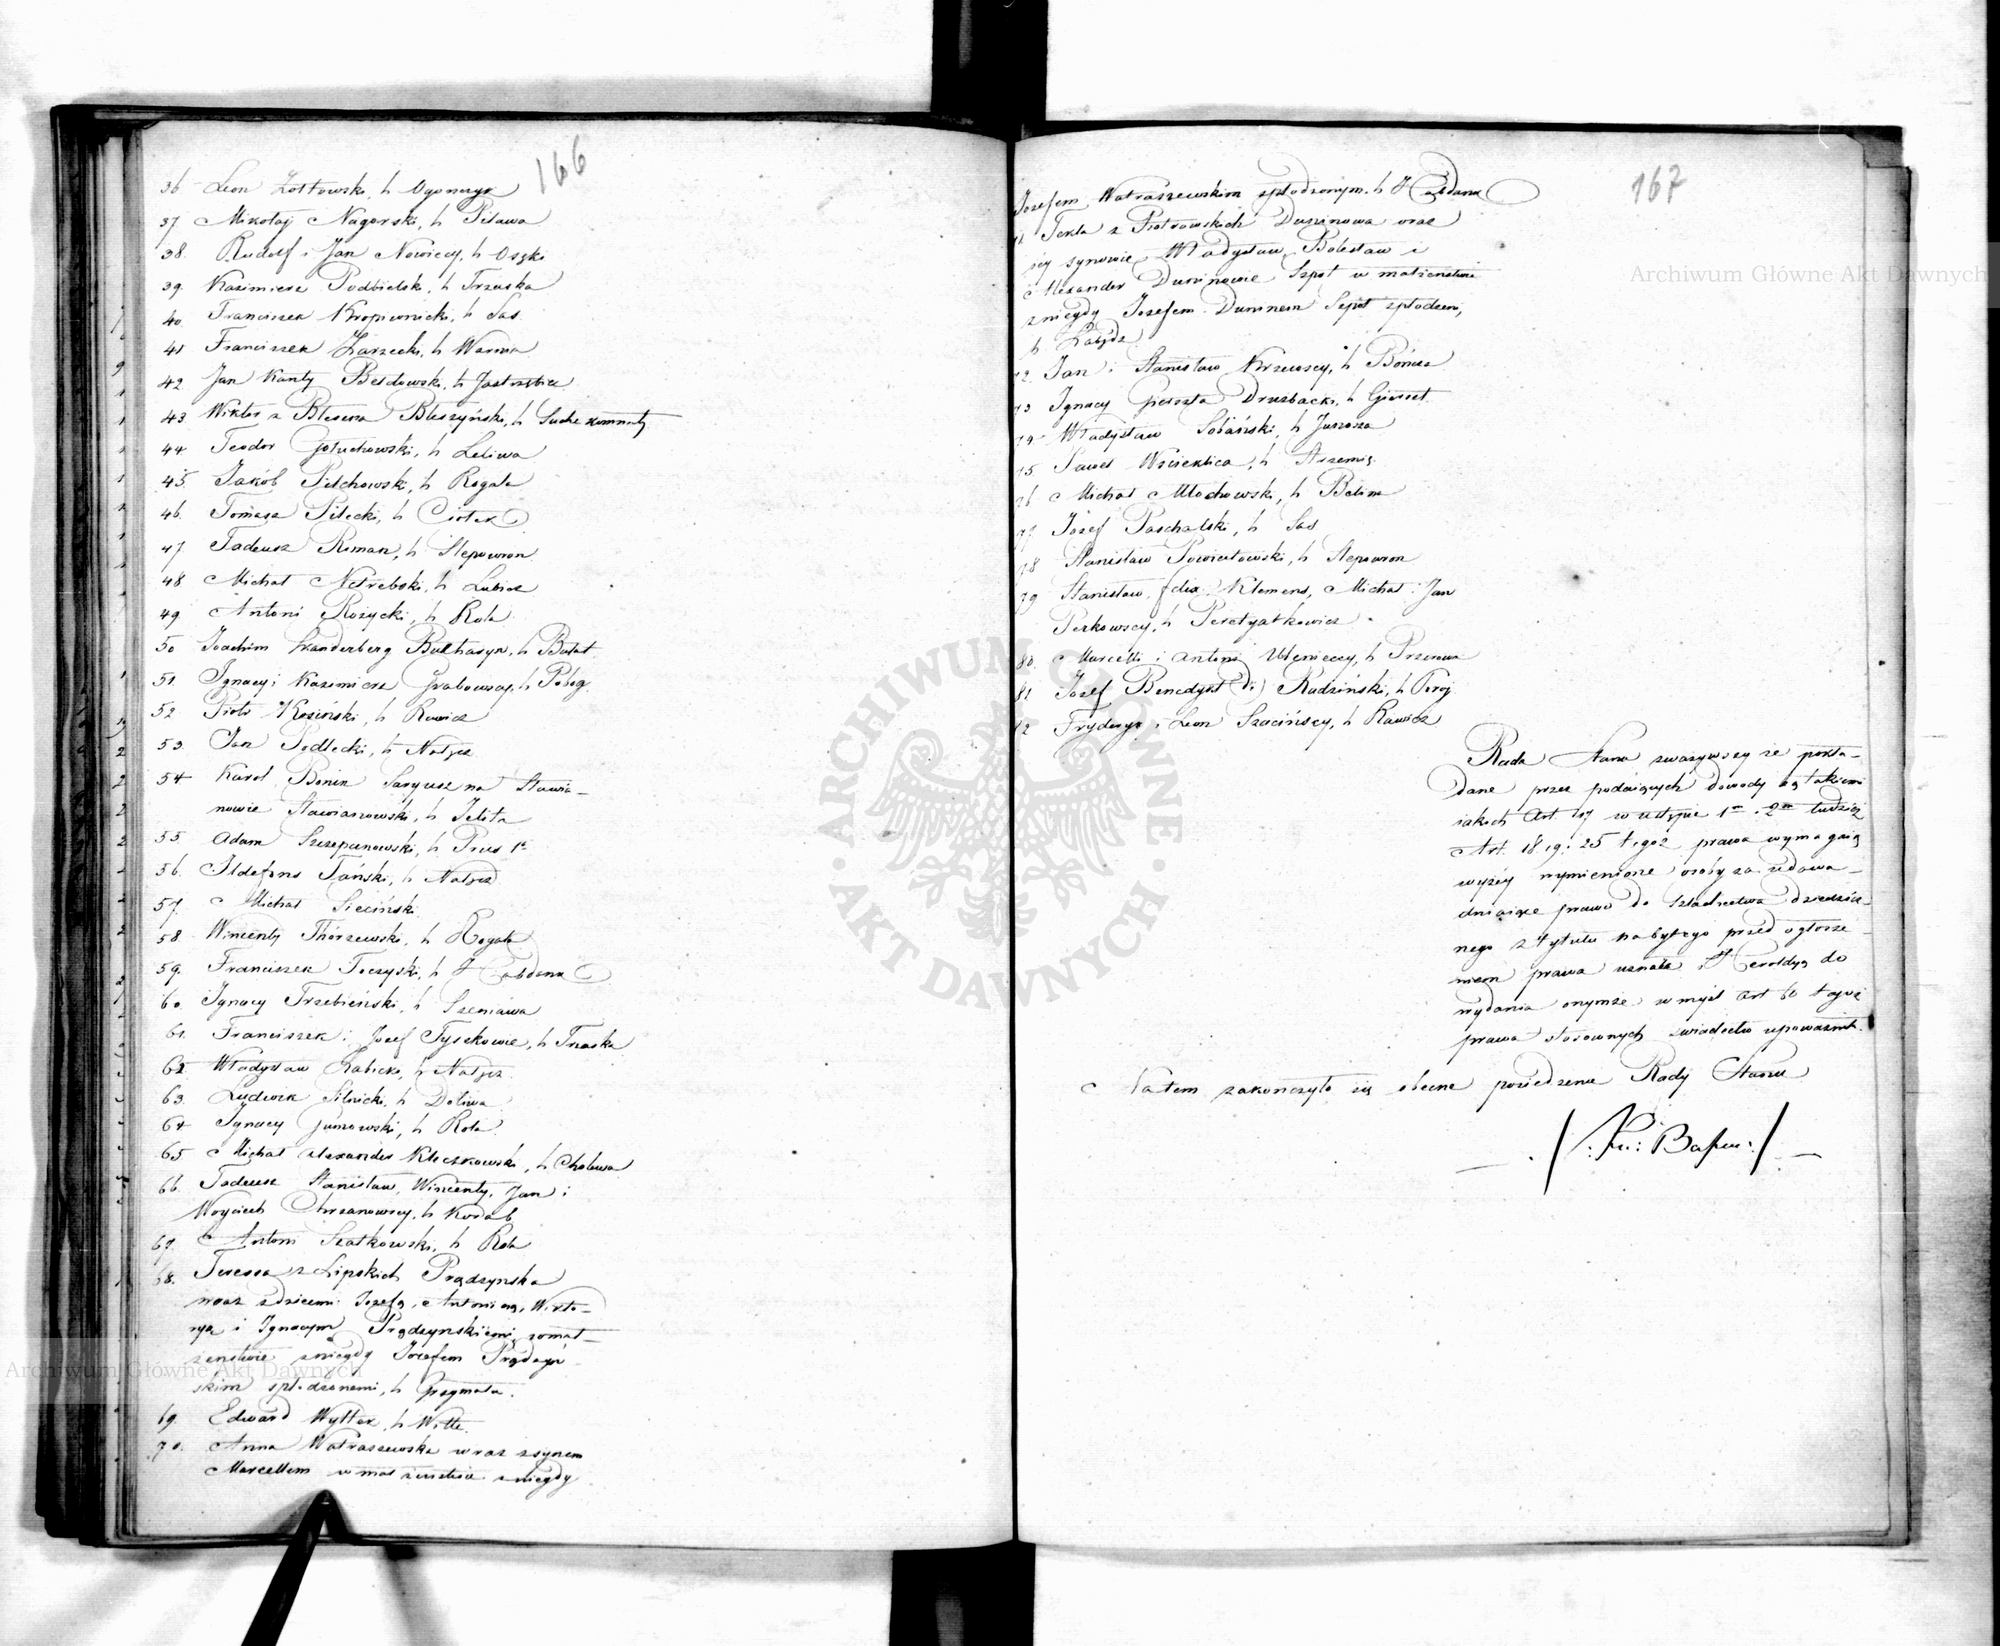 166
36 Leon Żołtowski, h Ogończyk
37 Mikołaj Nagorski, h Pilawa
38. Rudolf i Jan Nowiccy, h
39. Kazimierz Podbielski, h Trzaska
40. Franciszek Kropiwnicki, h Sas
41 Franciszek Zarzecki, h
42. Jan Kanty Bełdowski, h Jastrzębiec
43. Wiktor z Bleszna Bleszyński, h Suche komnaty
44 Teodor Gołuchowski, h Leliwa
45. Jakób Pilchowski, h Rogala
46. Tomasz Pilecki, h Ciołek
47. Tadeusz Roman, h Slepowron
48 Michał Netrebski, h Lubicz
49. Antoni Rożycki, h Rola
50 Joachim Branderberg h
51. Ignacy i Kazimierz Grabowscy, h Pobog
52 Piotr Kosiński, h Rawicz
53. Jan Podlecki, h Nałęcz
54 Karol Bonin Saryusz na Stawia-
nowie Stawianowski, h Jelita
55. Adam Szczepanowski, h Prus 1o
56. Ildefons Tański, h Nałęcz
57. Michał Sieciński
58. Wincenty Thórzewski, h Rogala
59. Franciszek Toczyski, h Habdank
60. Ignacy Trzebieński, h Szeniawa
61. Franciszek i Jozef h Trzaska
62. Władysław h Nałęcz
63. Ludwik Silnicki, h Doliwa
64 Ignacy Gumowski, h Rola
65 Michał Alexander Kleczkowski, h Cholewa
66. Tadeusz Stanisław, Wincenty, Jan i
Woyciech Chrzanowscy, h Korab
67. Antoni Szatkowski, h Rola
68. Teressa z Lipskich Prądzynska
wraz z dziecmi Jozefą, Antoniną, Wikto-
ryą i Ignacym Prądzynskiemi, z mał-
żenstwie z niegdy Jozefem Prądzyń-
skim spłodzonemi, h Grzymała.
69. Edward Wyttek, h Witte
70. Anna Watraszewska wraz z synem
Marcellem w małżenstwie z niegdy
167
Jozefem Watraszewskim spłodzonym, h Habdank
71 Tekla z Piotrowskich Duninowa oraz
jey synowie Władysław, Bolesław i
Alexander Duninowie Szpot w małżenstwie
z niegdy Jozefem Duninem Szpot spłodzeni,
h Łabędz
72. Jan i Stanisław Krzewscy, h Bończa
73 Ignacy Pieszta Druzbacki, h Gierałt
74 Władysław Sobański, h Junosza
75. Paweł Wścieklica, h
76 Michał Młochowski, h Belina
77 Józef Paschalski, h Sas
78 Stanisław h Slepowron
79 Stanisław, Felix, Klemens, Michał i Jan
Perkowscy, h Peretyatkowicz
80. Marcelli i Antoni h Przerowa
81 Jozef Benedykt (2i) Radziński, h
82 Fryderyk i Leon Szacińscy, h Rawicz
Rada Stanu zważywszy że pokła-
dane przez podaiących dowody są takiemi
iakich Art. 17 w ustępie 1m i 2m tudzież
Art. 18. 19 i 25 tegoż prawa wymagaią
wyżey wymienione osoby za udowa-
dniaiące prawo do Szlachectwa dziedzicz-
nego z tytułu nabytego przed ogłosze-
niem prawa uznała i Heroldyą do
wydania onymże w myśl Art 60 tegoż
prawa stosownych swiadectw upoważniła.
Na tem zakończyło się obecne posiedzenie Rady Stanu